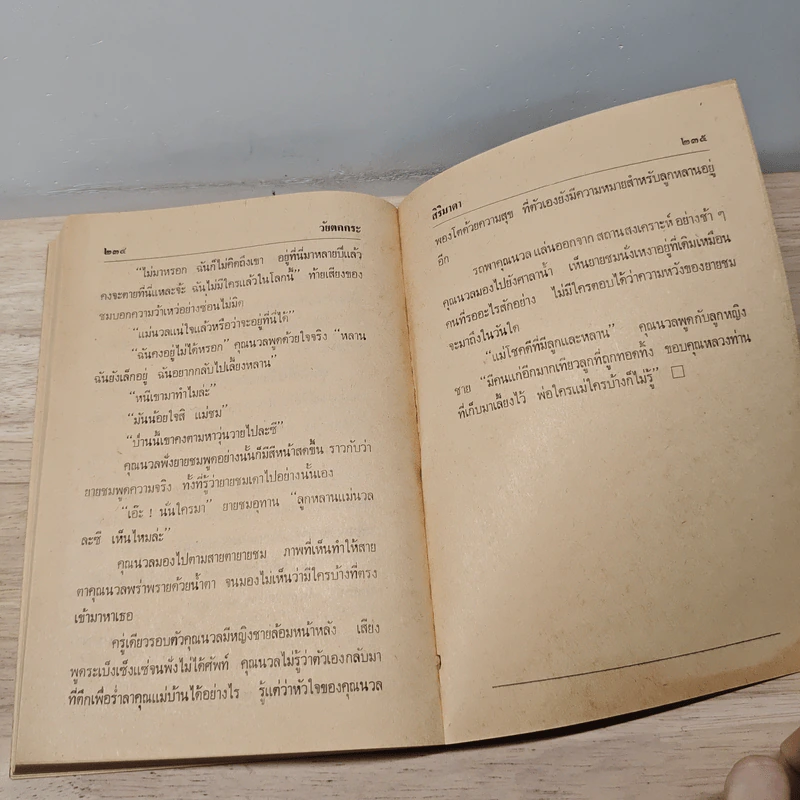 ๒๓๔
วัยตกกระ
“ไม่มาหรอก ฉันก็ไม่คิดถึงเขา อยู่ที่นี่มาหลายปีแล้ว
คงจะตายที่นี่แหละจ้ะ ฉันไม่มีใครแล้วในโลกนี้” ท้ายเสียงของ
ชมบอกความว้าเหว่อย่างซ่อนไม่มิด
“แม่นวลแน่ใจแล้วหรือว่าจะอยู่ที่นี่ได้”
“ฉันคงอยู่ไม่ได้หรอก” คุณนวลพูดด้วยใจจริง “หลาน
ฉันยังเล็กอยู่ ฉันอยากกลับไปเลี้ยงหลาน”
“หนีเขามาทำไมล่ะ”
“มันน้อยใจสิ แม่ชม”
“ป่านนี้เขาคงตามหาวุ่นวายไปละซี”
คุณนวลฟังยายชมพูดอย่างนั้นก็มีสีหน้าสดชื่น ราวกับว่า
ยายชมพูดความจริง ทั้งที่รู้ว่ายายชมเดาไปอย่างนั้นเอง
“เอ๊ะ ! นั่นใครมา” ยายชมอุทาน “ลูกหลานแม่นวล
ละซี เห็นไหมล่ะ”
คุณนวลมองไปตามสายตายายชม ภาพที่เห็นทำให้สาย
ตาคุณนวลพร่าพรายด้วยน้ำตา จนมองไม่เห็นว่ามีใครบ้างที่ตรง
เข้ามาหาเธอ
ครู่เดียวรอบตัวคุณนวลมีหญิงชายล้อมหน้าหลัง เสียง
พูดระเบ็งเซ็งแซ่จนฟังไม่ได้ศัพท์ คุณนวลไม่รู้ว่าตัวเองกลับมา
ที่ตึกเพื่อร่ำลาคุณแม่บ้านได้อย่างไร รู้แต่ว่าหัวใจของคุณนวล
สิริมาดา
๒๓๕
พองโตด้วยความสุข ที่ตัวเองยังมีความหมายสำหรับลูกหลานอยู่
อีก
รถพาคุณนวลแล่นออกจาก สถานสงเคราะห์ อย่างช้า ๆ
คุณนวลมองไปยังศาลาน้ำ เห็นยายชมนั่งเหงาอยู่ที่เดิมเหมือน
คนที่รออะไรสักอย่าง ไม่มีใครตอบได้ว่าความหวังของยายชม
จะมาถึงในวันใด
“แม่โชคดีที่มีลูกและหลาน” คุณนวลพูดกับลูกหญิง
ชาย “มีคนแก่อีกมากเทียวลูกที่ถูกทอดทิ้ง ขอบคุณหลวงท่าน
ที่เก็บมาเลี้ยงไว้ พ่อใครแม่ใครบ้างก็ไม่รู้” □